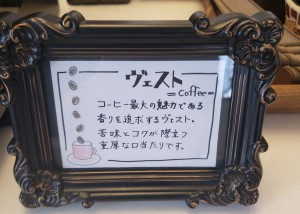 ヴェスト
=Coffee=
コーヒー最大の魅力である
香りを追求するヴェスト。
苦味とコクが際立つ
重厚な口当たりです。